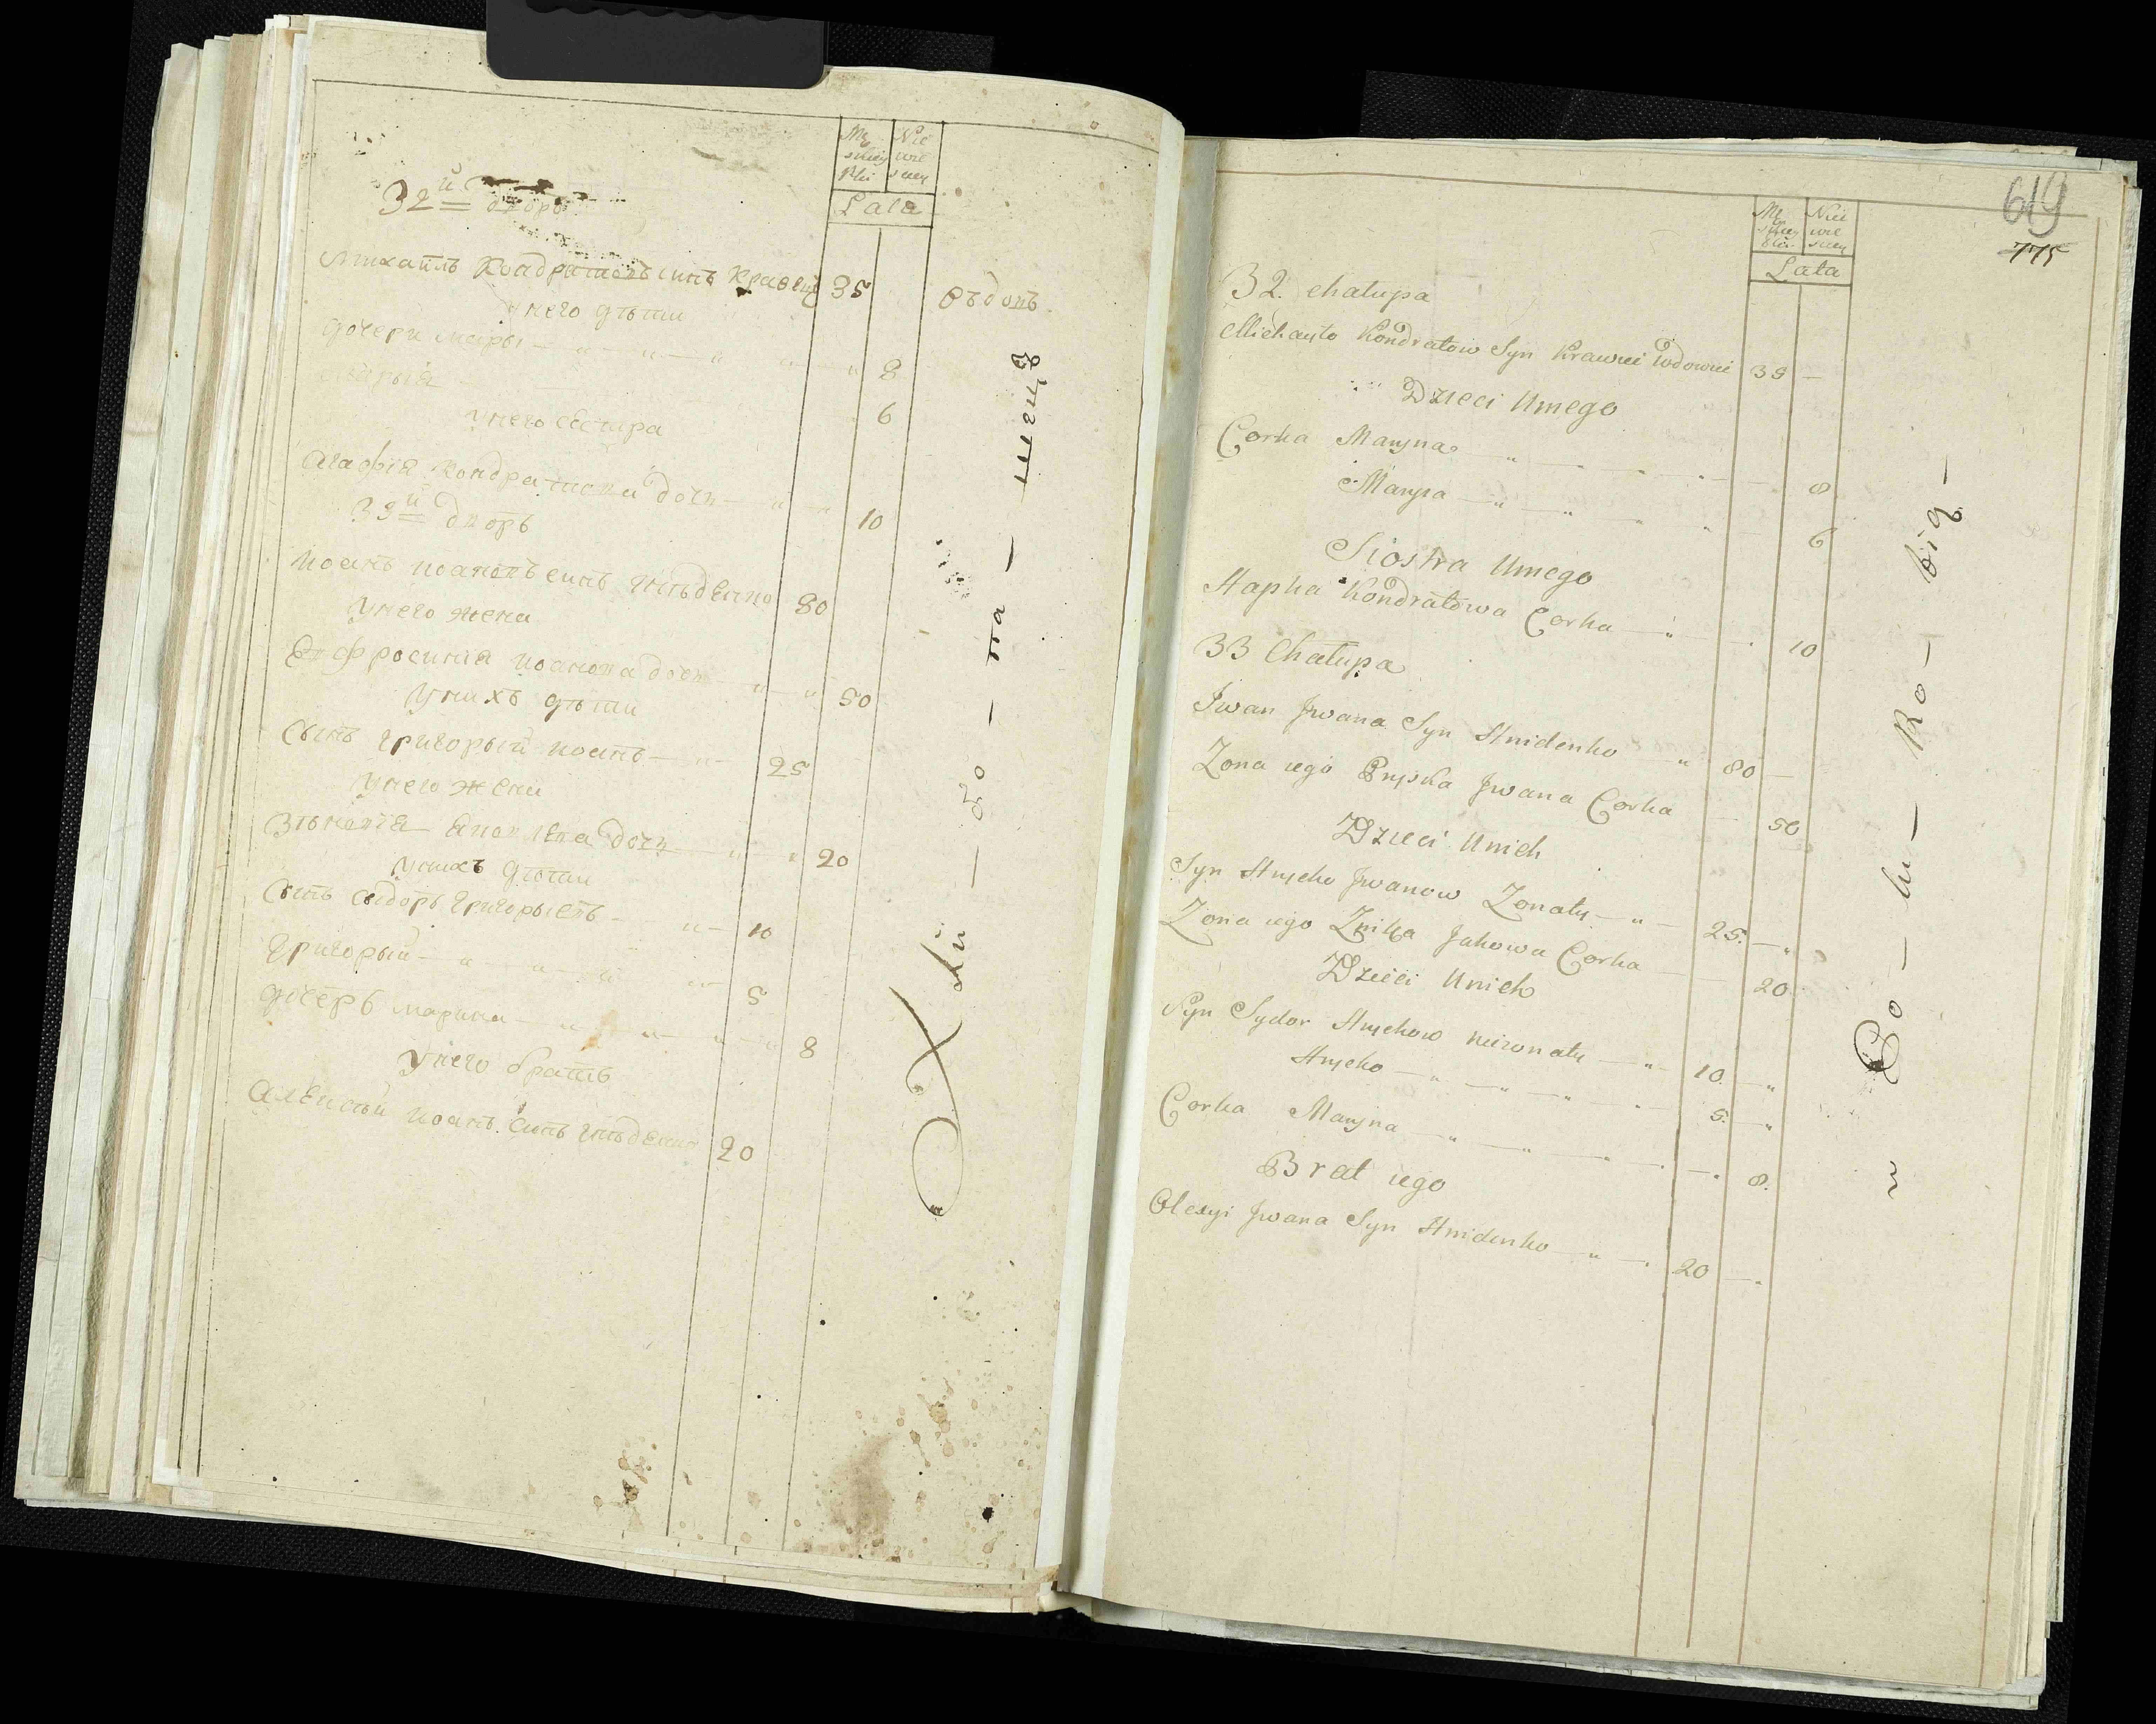 Mę Nie
skiey wie
Płci scey
Lata
32й дворъ
Михаилъ Кондратовъ синъ Кравецъ 35 вдовъ
У него дѣти
дочери Мары 8
Марыя 6
У него сестра
Агафія Кондратова дочь 10
33й дворъ
Иоанъ Иоановъ синъ Гнѣденко 80
У него жена
Евфросинія Иоанова дочь 50
У нихъ дѣти
Сынъ Григорый Иоанъ 25
У него жена
Зѣновія Яковлева дочь 20
У нихъ дѣти
Сынъ Сидоръ Григорыевъ 10
Григорый 5
дочеръ Марина 8
У него братъ
Алексѣй Иоан. синъ Гнѣденко 20
шецъ
619
775
Mę Nie
skiey wie
Płci scey
Lata
32. Chałupa
Michayło Kondratow Syn Krawiec Wdowiec 35
Dzieci Uniego
Corka Maryna 8
Marya 6
Siostra Uniego
Hapka Kondratowa Corka 10
33 Chałupa
Jwan Jwana Syn Hnidenko 80
Zona iego Pryska Jwana Corka 50
Dzieci Unich
Syn Hrycko Jwanow Zonaty 25.
Zona iego Zinka Jakowa Corka 20
Dzieci Unich
Syn Sydor Hryckow niezonaty 10.
Hrycko 5.
Corka Maryna 8.
Brat iego
Olexyi Jwana Syn Hnidenko 20